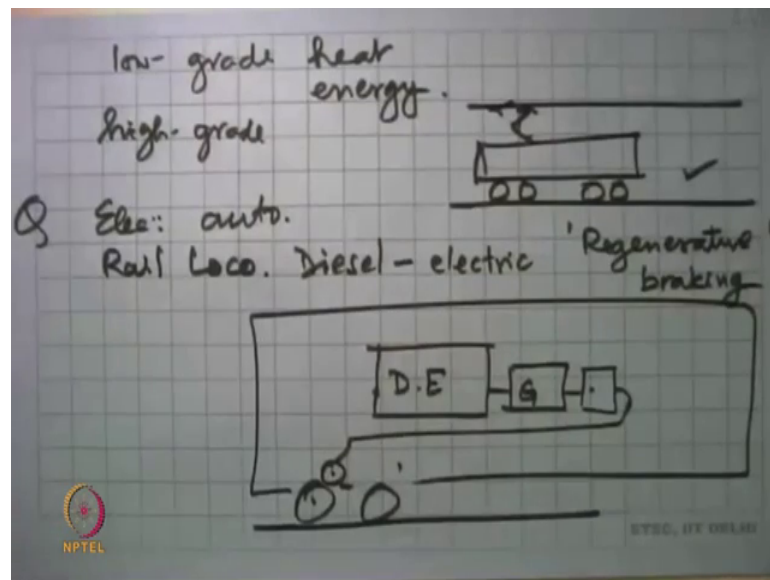 low-grade heat
energy.
high-grade
Q Elec:: auto.
Rail Loco. Diesel-electric
'Regenerative'
braking
D.E
G
NPTEL
ETSC, IIT DELHI